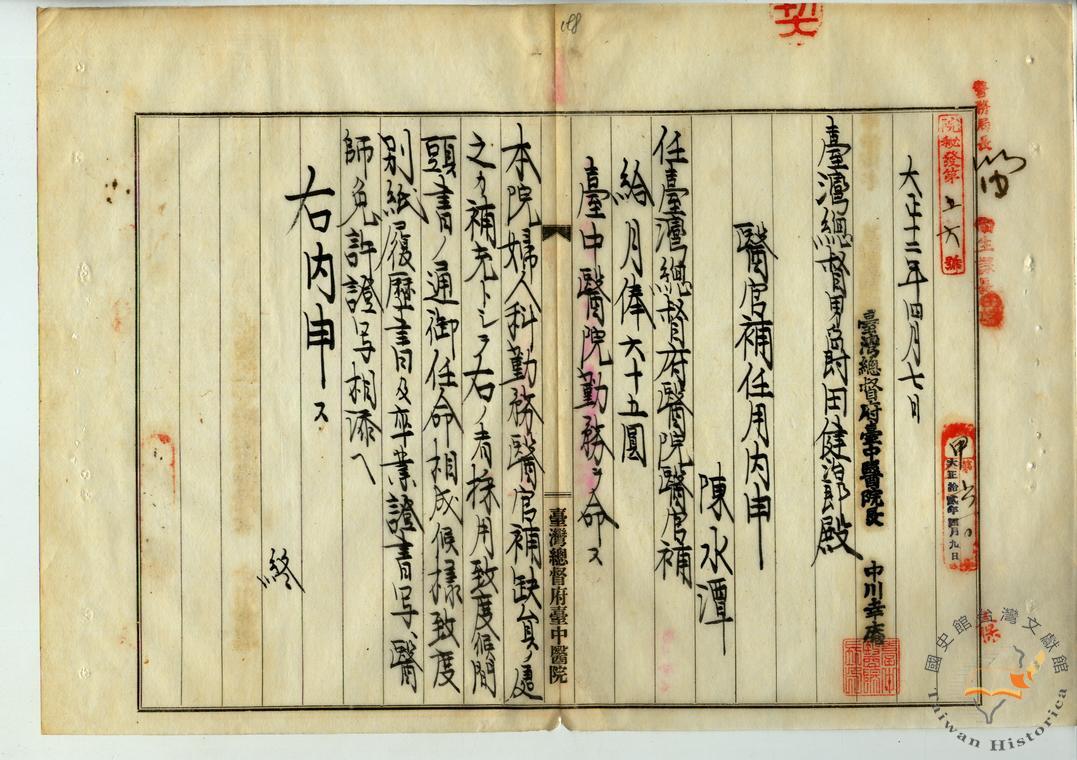 院秘發第五六號
大正十二年四月七日
臺灣總督府臺中醫院長 中川幸庵
臺灣總督男爵田健治郎殿
醫官補任用內申
陳水潭
任臺灣總督府醫院醫官補
給月俸六十五圓
臺中醫院勤務ヲ命ス
臺灣總督府臺中醫院
本院婦人科勤務醫官補缺員ノ處
之カ補充トシテ右ノ者採用致度候間
頭書ノ通御任命相成候樣致度
別紙履歷書及卒業證書写、醫
師免許證写相添ヘ
右內申ス
終
警務局長
衛生課長
大正拾貳年四月九日
國史館臺灣文獻館
Taiwan Historica